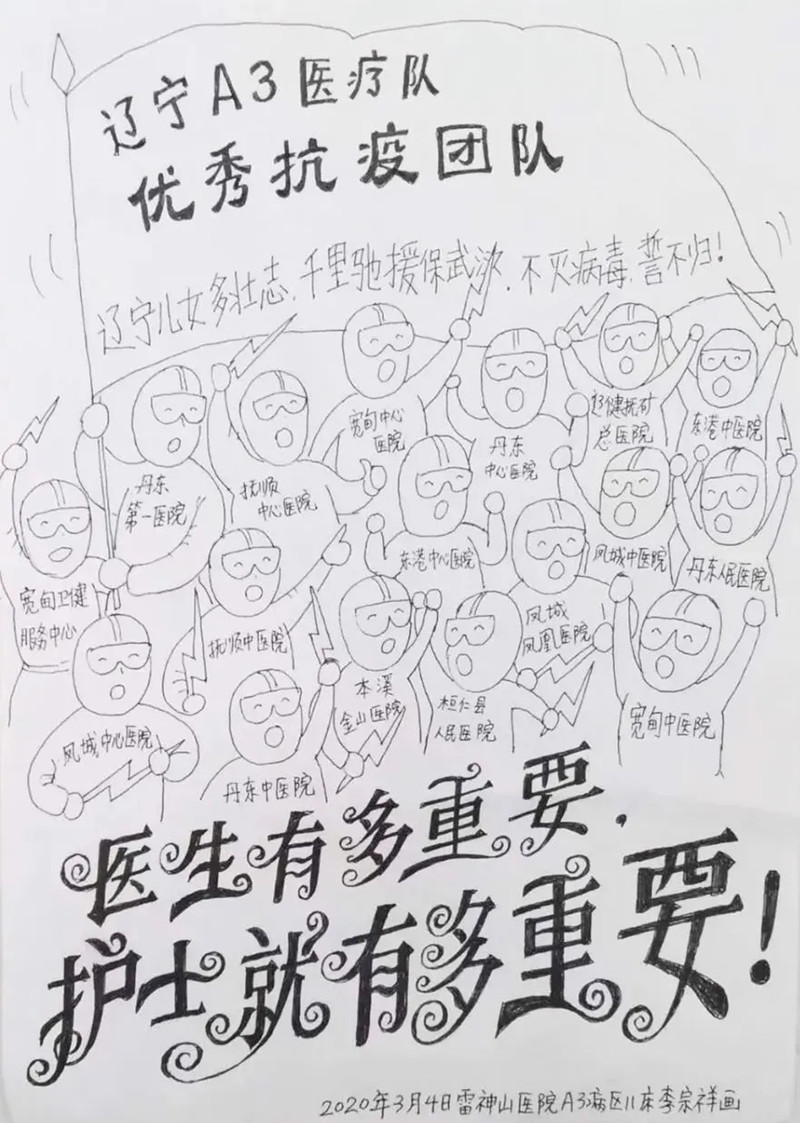 辽宁A3医疗队
优秀抗疫团队
辽宁儿女多壮志,千里驰援保武汉,不灭病毒,誓不归!
宽甸中心
医院
辽健抚矿
总医院
东港中医院
丹东
中心医院
丹东
第一医院
抚顺
中心医院
东港中心医院
凤城中医院
丹东人民医院
宽甸卫健
服务中心
抚顺中医院
凤城
凤凰医院
本溪
金山医院
桓仁县
人民医院
宽甸中医院
凤城中心医院
丹东中医院
医生有多重要,
护士就有多重要!
2020年3月4日雷神山医院A3病区11床李宗祥画